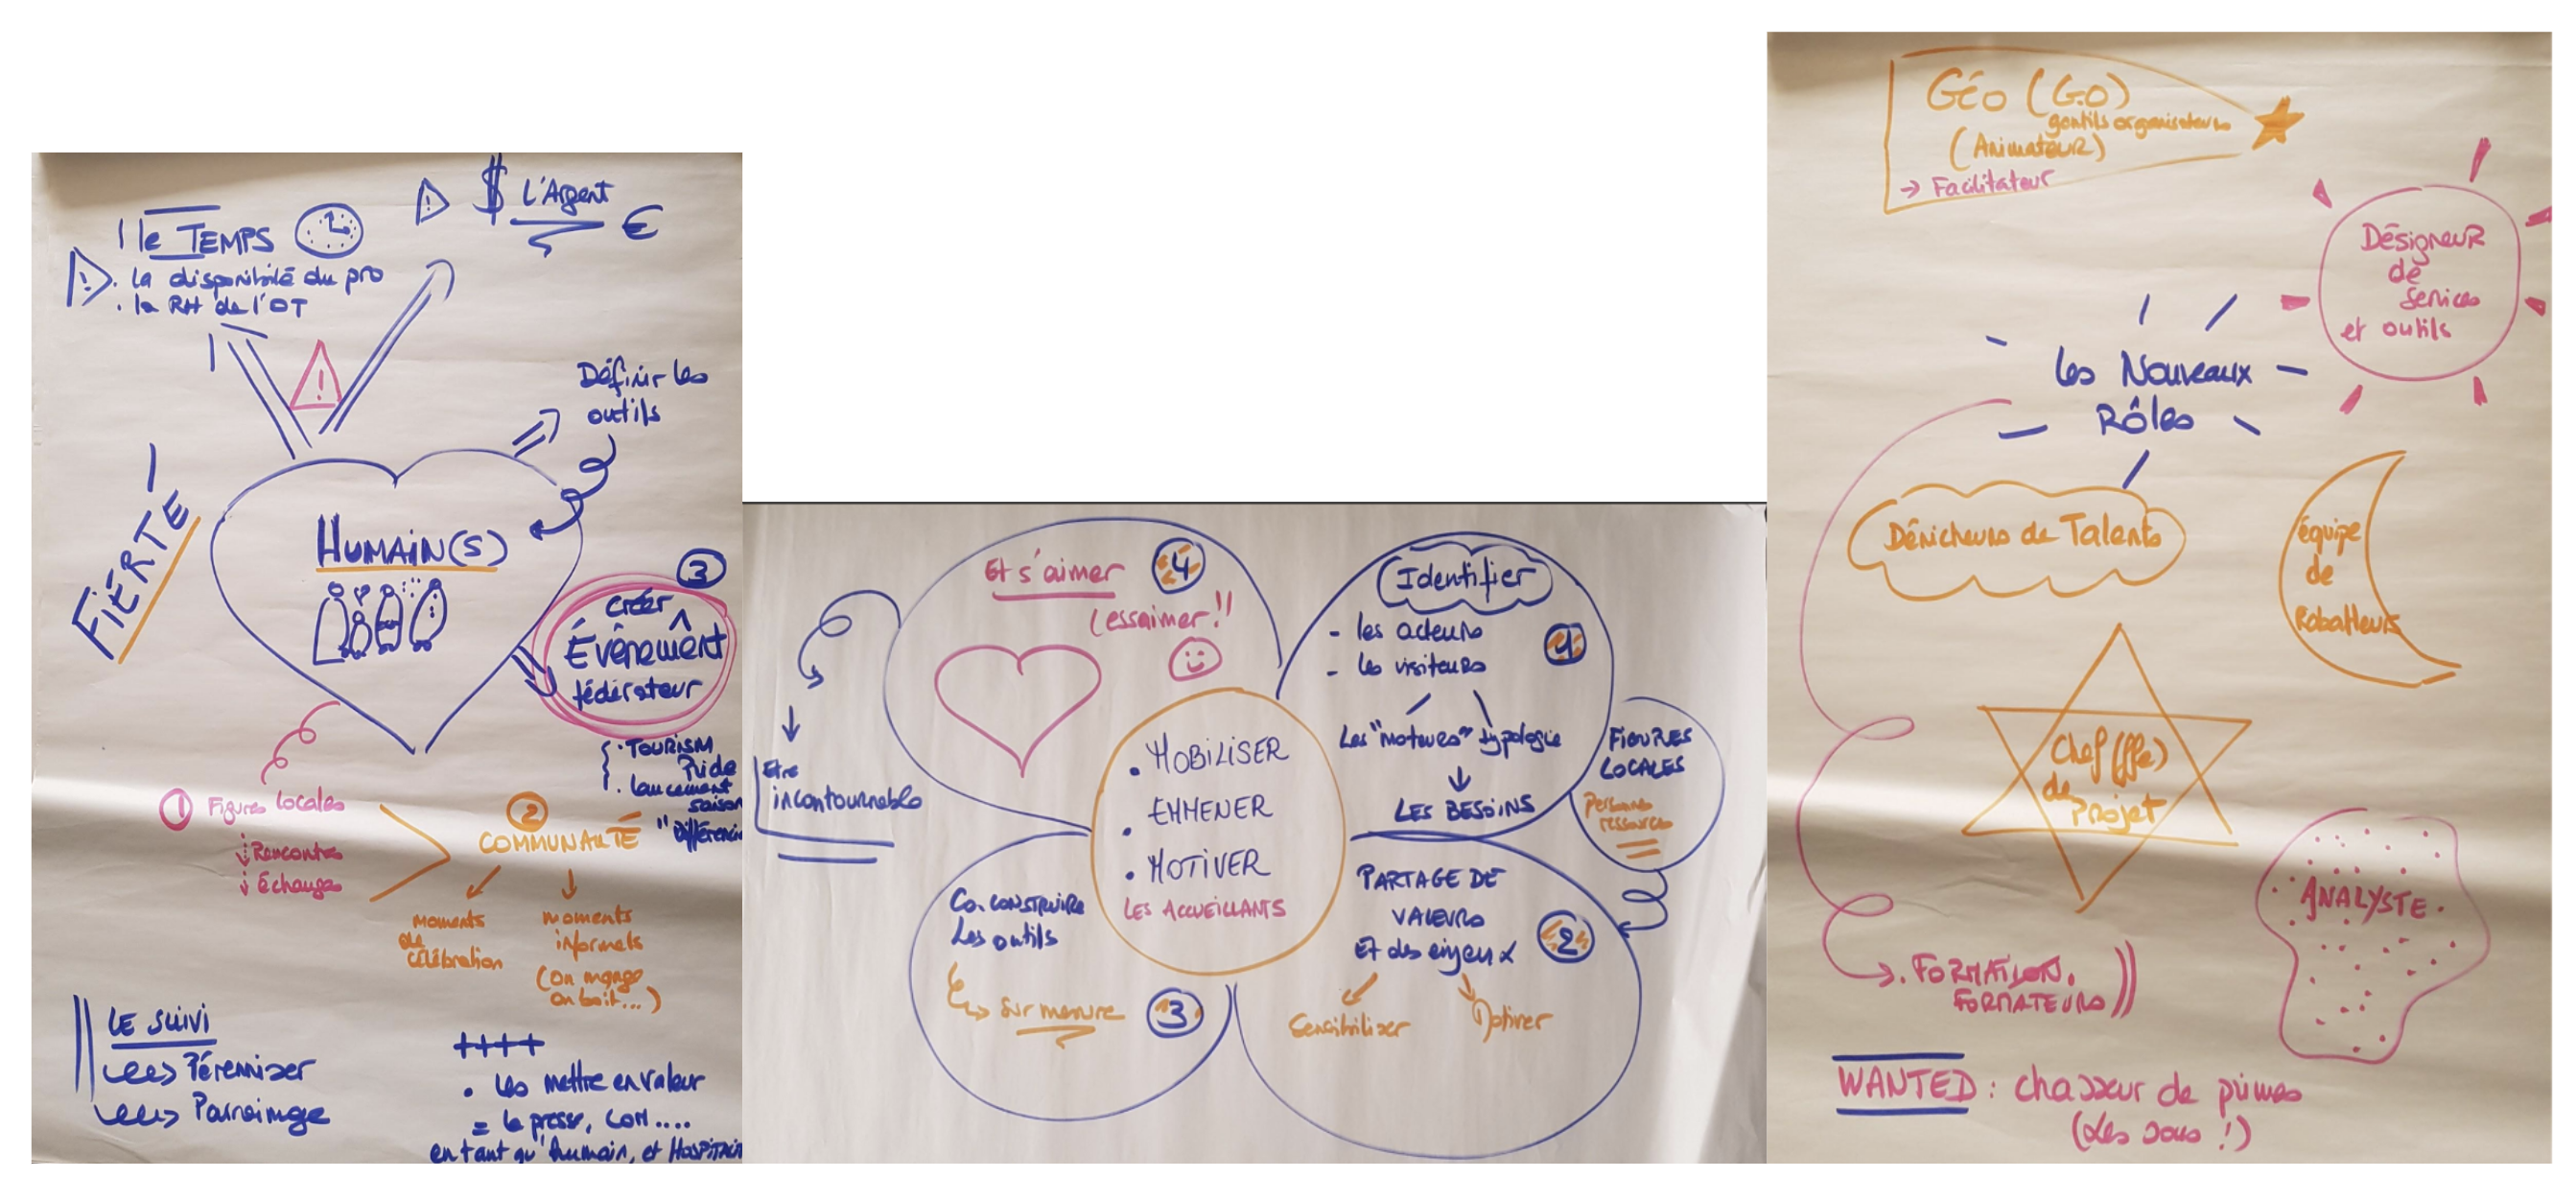 ! le TEMPS
. la disponibilité du pro
. la RH de l'OT
! $ L'Argent
€
!
Définir les
outils
FIERTÉ
HUMAIN(S)
3
créer
Évènement
fédérateur
. TOURISM
Pride
. lancement
saison
1 Figures Locales
Rencontres
Échanges
2
COMMUNAUTÉ
moments
de
célébration
moments
informels
(on mange
on boit...)
LE SUIVI
Pérenniser
Parrainage
++++
. les mettre en valeur
= la presse, com....
en tant qu'humain, et
Et s'aimer
4
(essaimer!!
Etre
incontournables
Identifier
- les acteurs
- les visiteurs
1
Les "moteurs" typologie
LES BESOINS
FIGURES
LOCALES
Personnes
ressources
. MOBILISER
. EMMENER
. MOTIVER
LES ACCUEILLANTS
Co.construire
Les outils
Sur mesure
3
PARTAGE DE
VALEURS
ET des enjeux
2
Sensibiliser
Motiver
Géo (G.O)
gentils organisateurs
(Animateur)
→ Facilitateur
Désigneur
de
Services
et outils
Les Nouveaux
Rôles
Dénicheurs de Talents
équipe
de
Rabatteurs
Chef(ffe)
de
Projet
ANALYSTE.
. FORMATION.
FORMATEURS
WANTED : chasseur de primes
(des sous !)